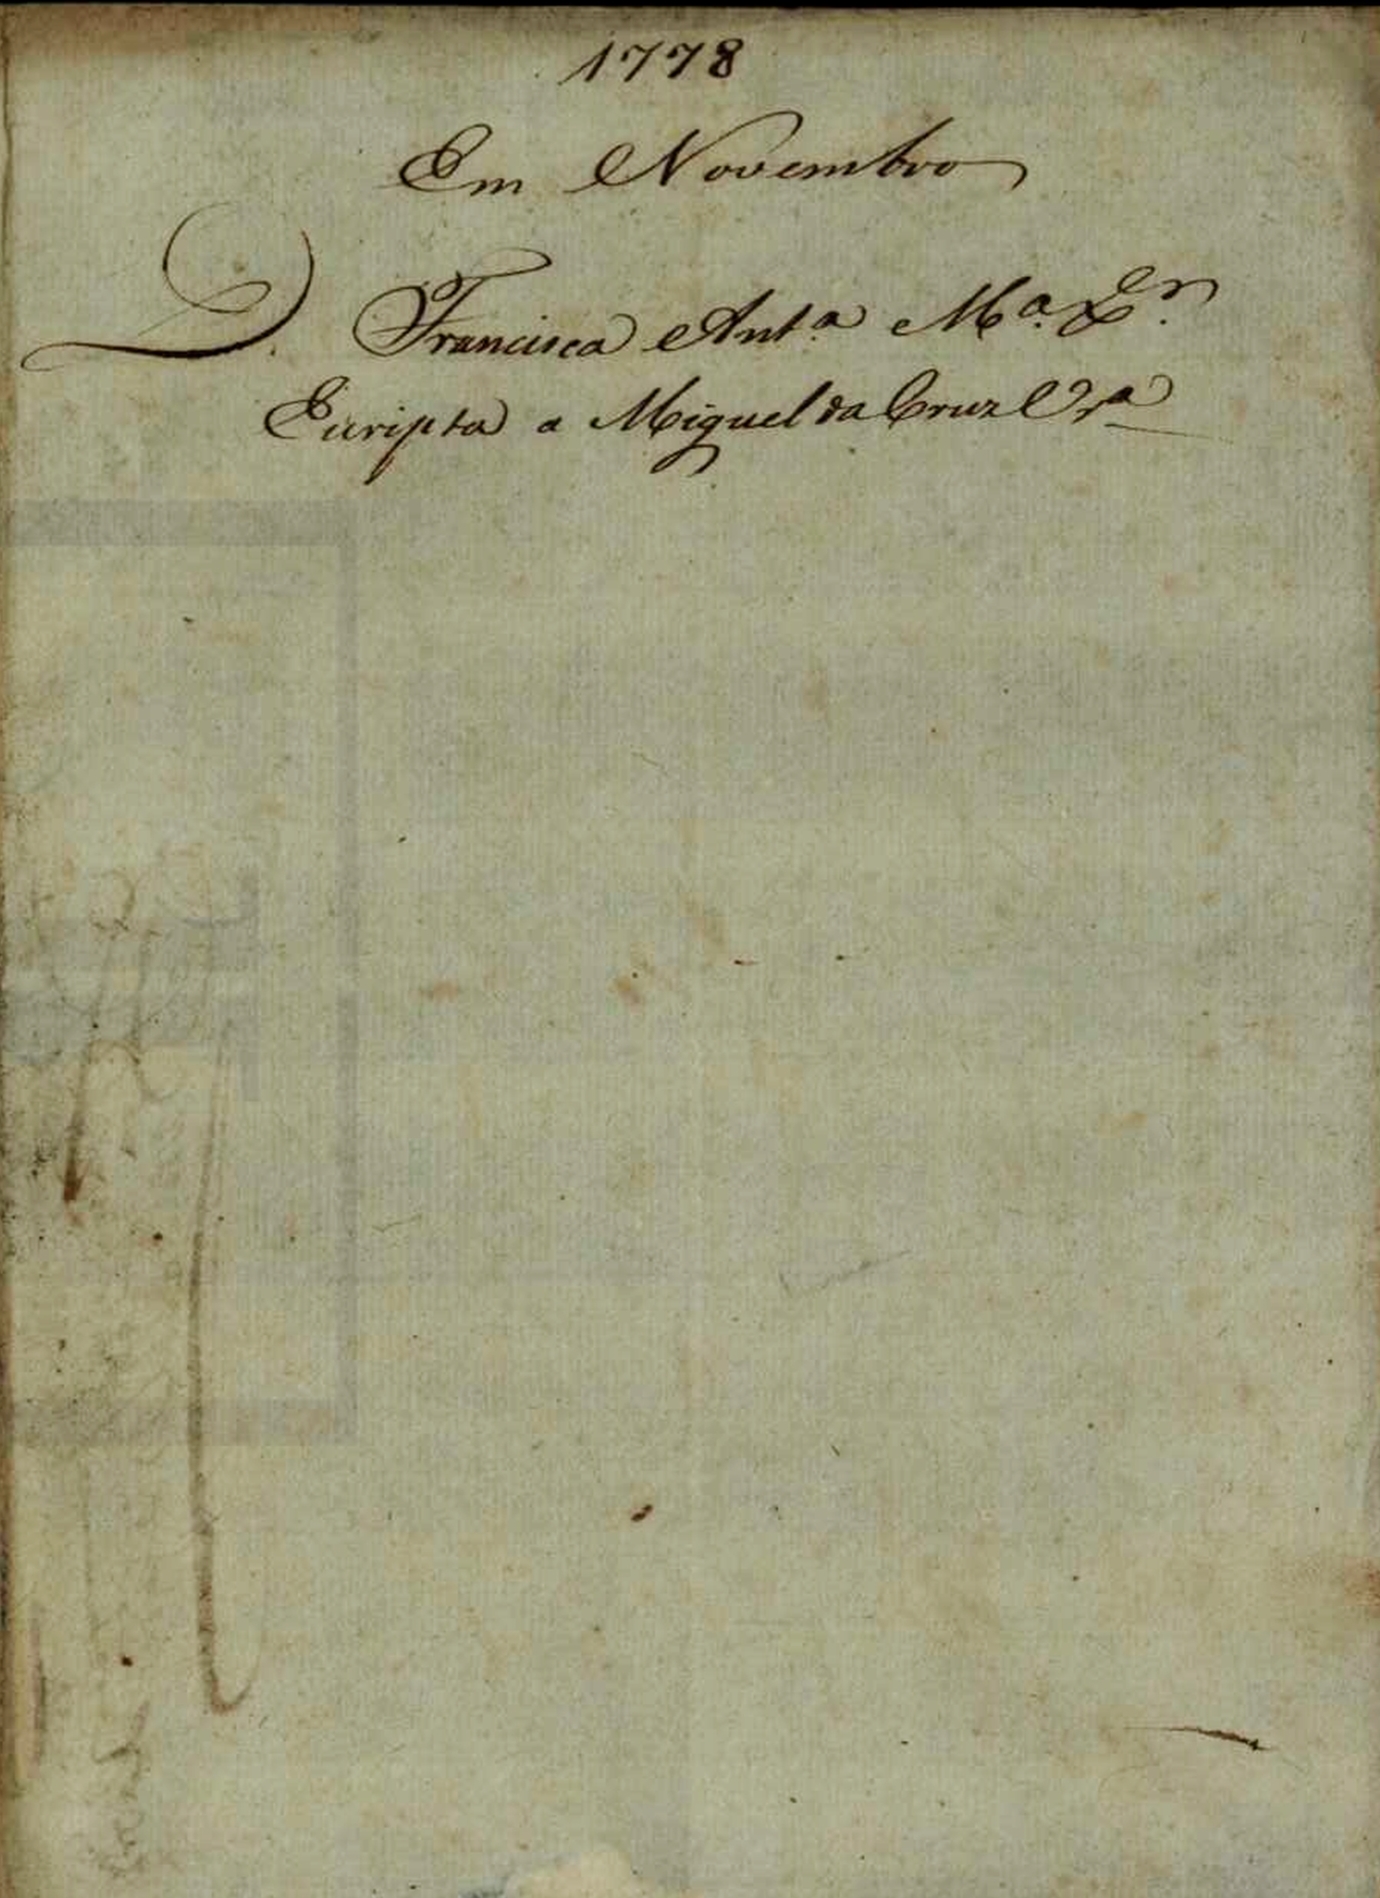 1778
Em Novembro
D. Francisca Ant.ª M.ª X.er
Escripta a Miguel da Cruz